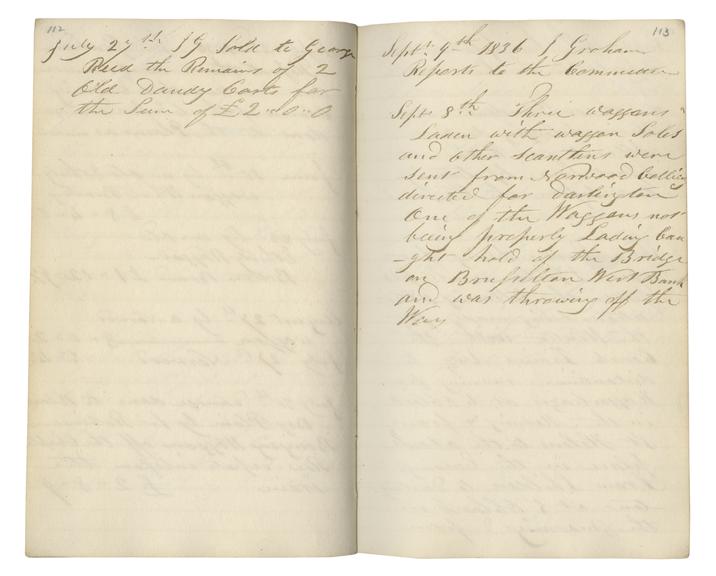 112
July 27th JG Sold to George
Reed the Remains of 2
Old Dandy Carts for
the Sum of £2"0"0
113
Septr 9th 1836 J Graham
Reports to the Committee
Septr 8th Three waggons
Laden with waggon Soles
and other Scantlins were
sent from Norwood Colliery
directed for Darlington
One of the Waggons not
being properly Lading Cau
-ght hold of the Bridge
on Brussilton West Bank
and was throwing off the
Way